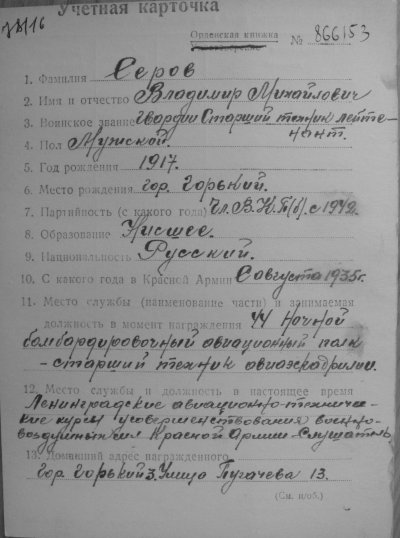 Учетная карточка
Орденская книжка
№ 866153
1. Фамилия Серов
2. Имя и отчество Владимир Михайлович
3. Воинское звание гвардии Старший техник лейте-
нант.
4. Пол Мужской.
5. Год рождения 1917.
6. Место рождения гор. Горький.
7. Партийность (с какого года) Чл. В.К.П(б). с 1942.
8. Образование Нисшее.
9. Национальность Русский.
10. С какого года в Красной Армии С августа 1935г.
11. Место службы (наименование части) и занимаемая
должность в момент награждения 44 Ночной
бомбардировочный авиационный полк
- старший техник авиаэскадрилии.
12. Место службы и должность в настоящее время
Ленинградские авиационно-техниче-
ские курсы усовершенствования военно-
воздушных сил Красной Армии - Слушатель.
13. Домашний адрес награжденного
гор. Горький 3. Улица Пугачева 13.
(См. н/об.)